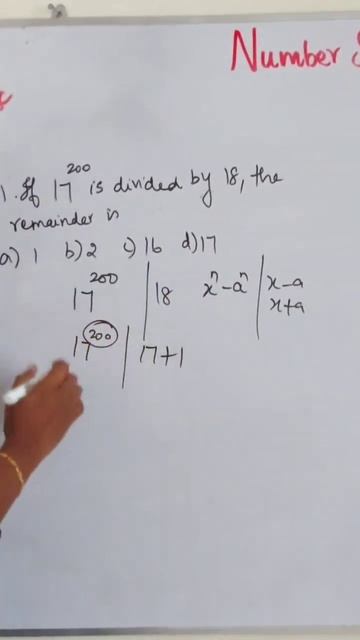 Number S
1. If 17^200 is divided by 18, the
remainder is
a) 1 b) 2 c) 16 d) 17
17^200 | 18 x^n - a^n | x - a
x + a
17^200 | 17 + 1